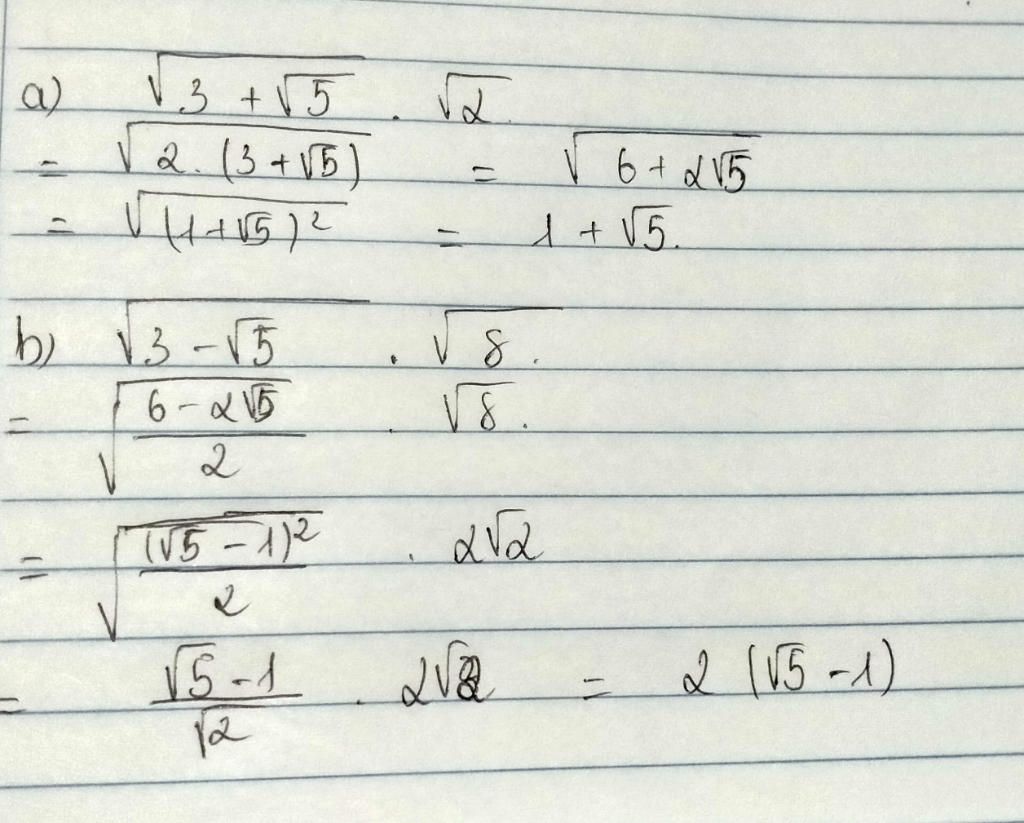 a) √(3 + √5) . √2
= √(2.(3+√5)) = √(6+2√5)
= √((1+√5)²) = 1 + √5.
b) √(3-√5) . √8.
= √((6-2√5)/2) . √8.
= √((√5-1)²/2) . 2√2
= (√5-1)/√2 . 2√2 = 2 (√5-1)